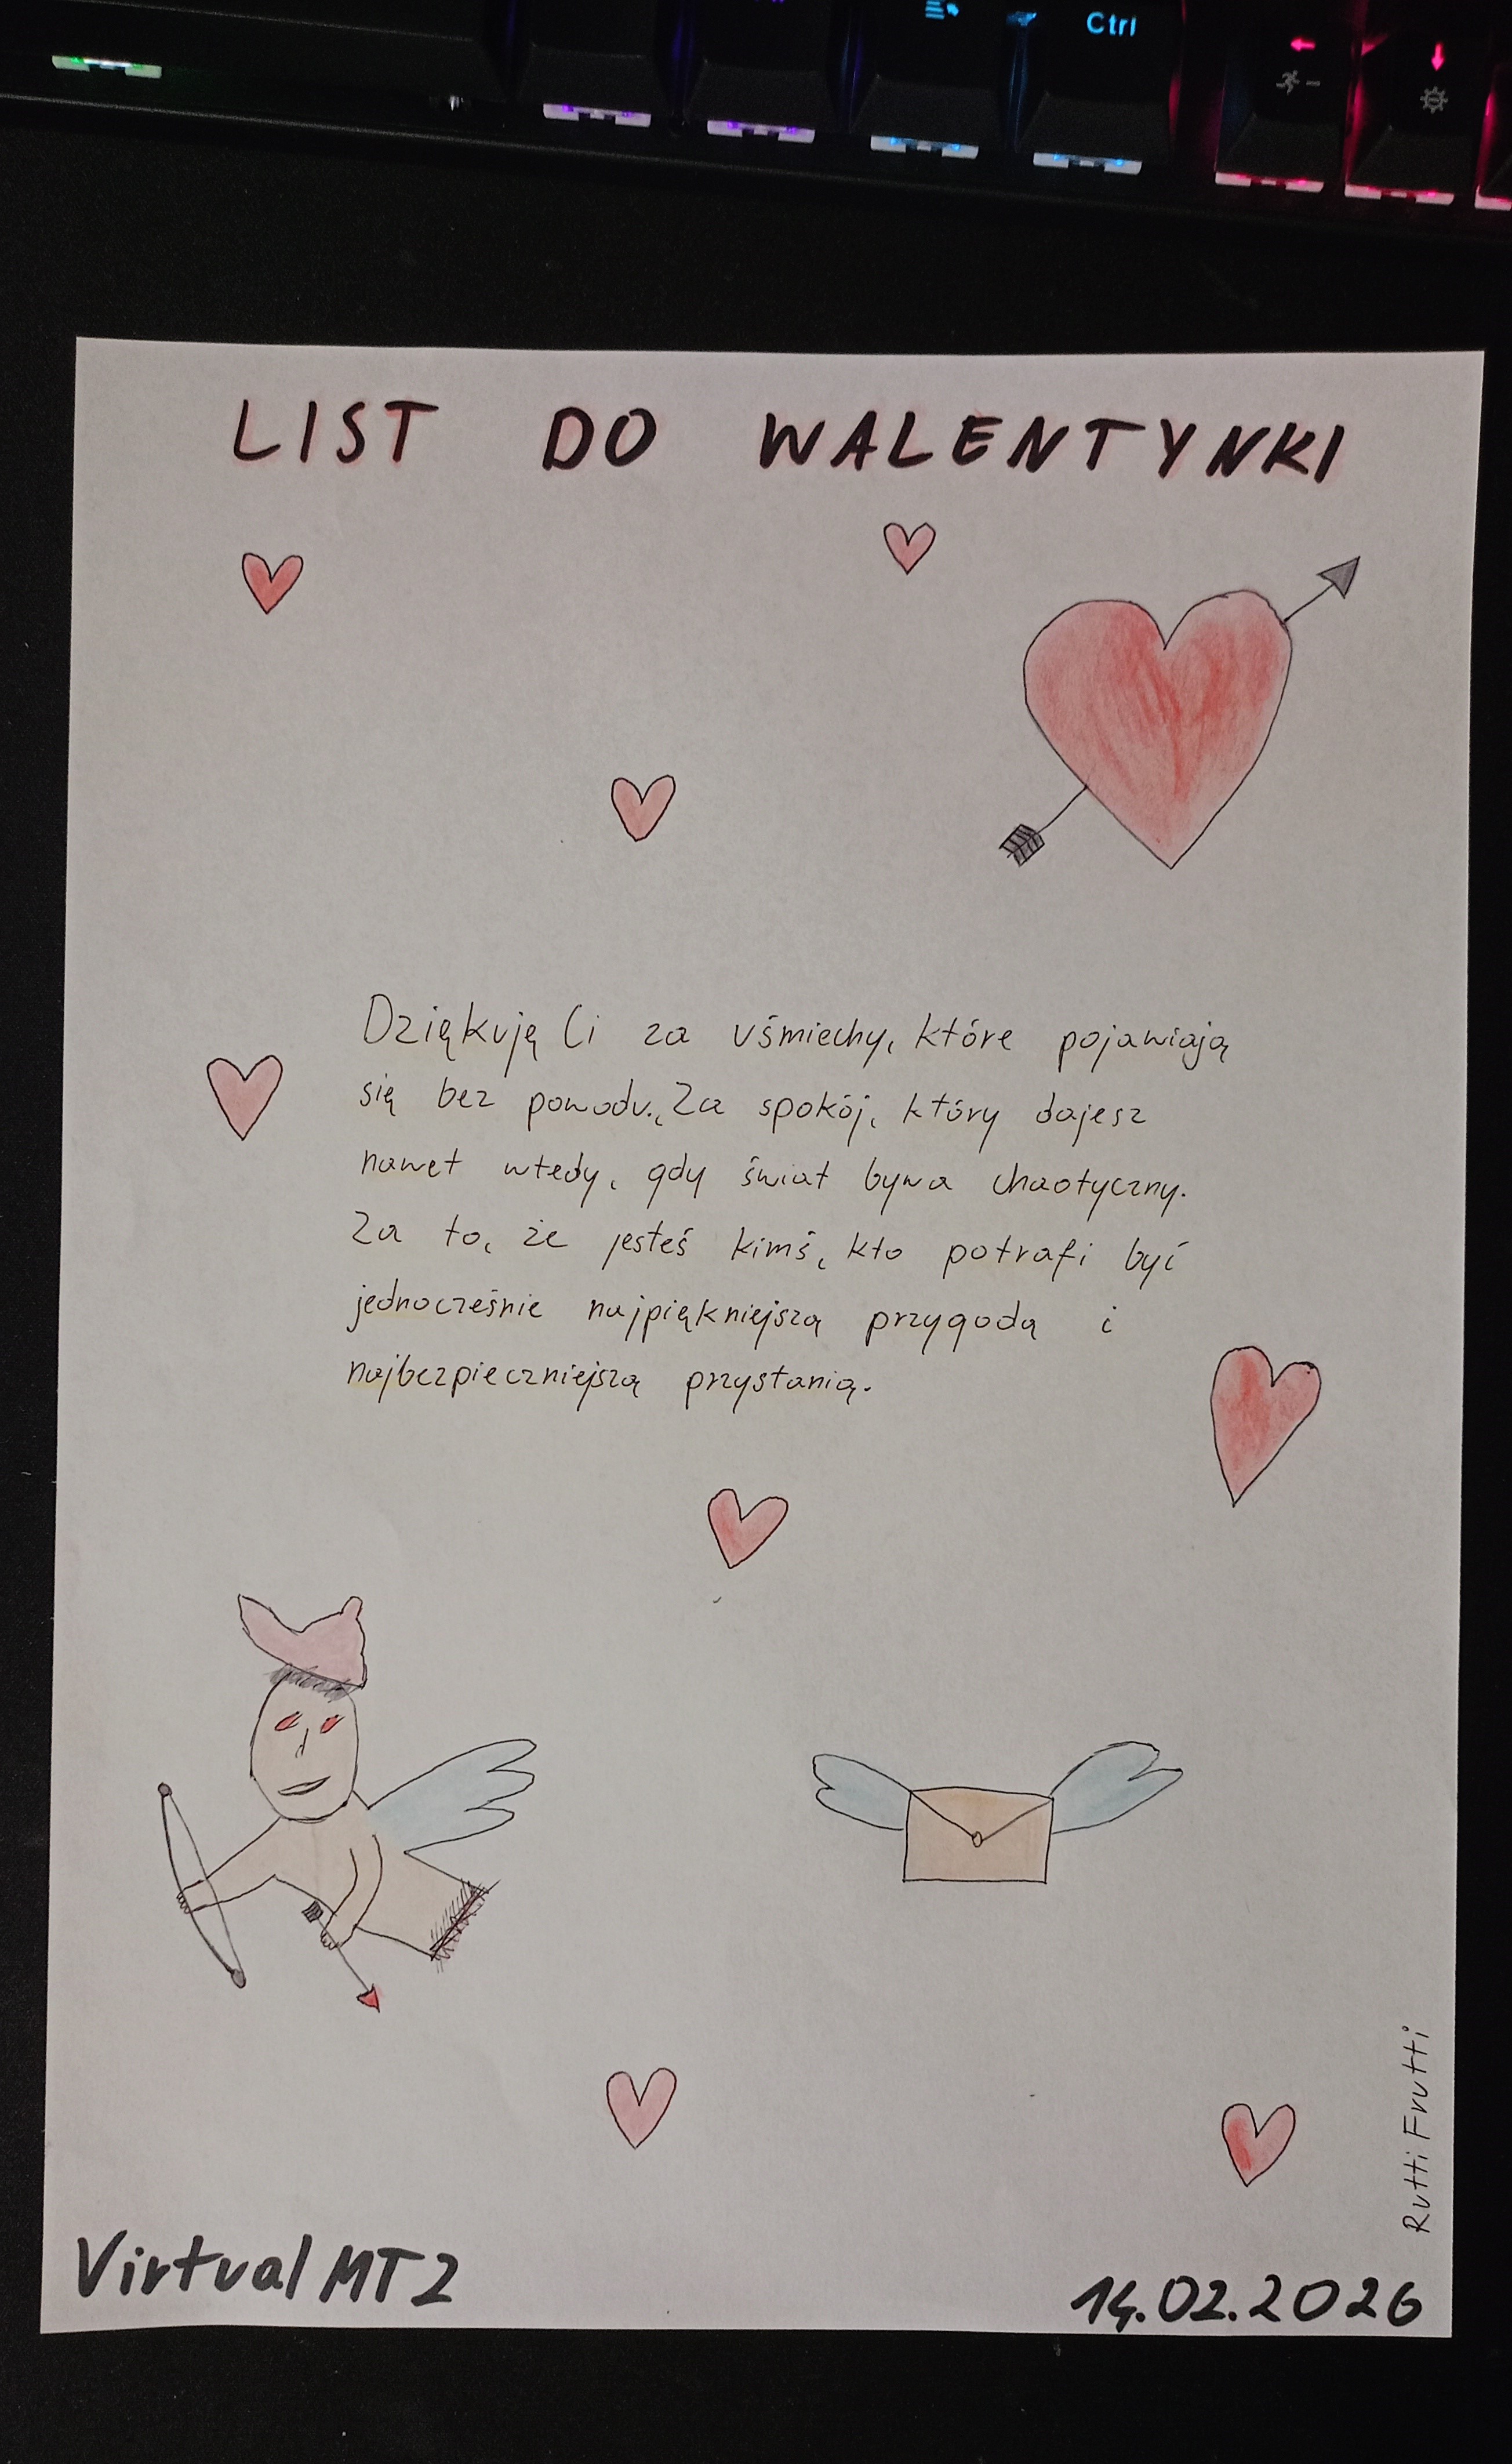 Ctrl
LIST DO WALENTYNKI
Dziękuję Ci za uśmiechy, które pojawiają
się bez powodu., Za spokój, który dajesz
nawet wtedy, gdy świat bywa chaotyczny.
Za to, że jesteś kimś, kto potrafi być
jednocześnie najpiękniejszą przygodą i
najbezpieczniejszą przystanią.
Rutti Frutti
Virtual MT2
14.02.2026